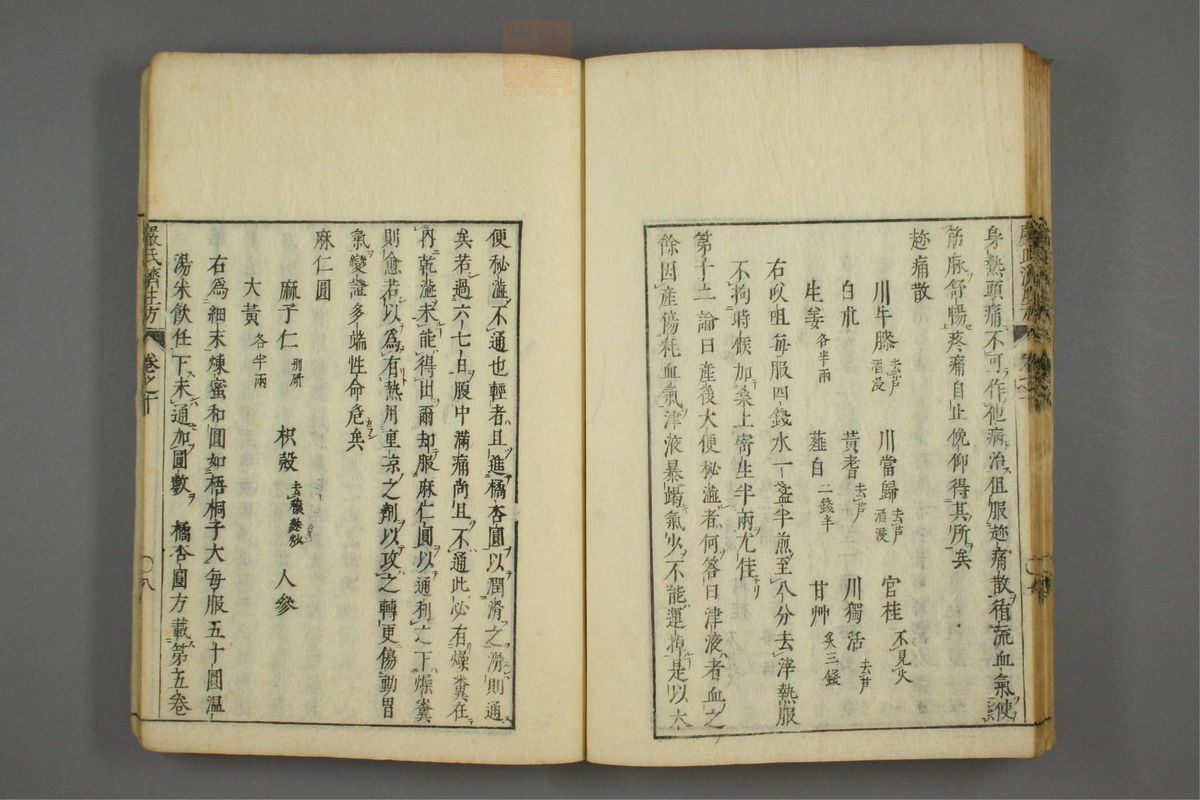 身熱頭痛不可作他病治但服趂痛散循流血氣使
筋脉舒暢疼痛自止俛仰得其所矣
趂痛散
川牛膝去芦酒浸 川當歸去芦酒浸 官桂不見火
白朮 黃耆去芦 川獨活去芦
生姜各半兩 薤白二錢半 甘艸炙三錢
右㕮咀每服四錢水一盞半煎至八分去滓熱服
不拘時候加桑上寄生半兩尤佳
第十二論曰產後大便秘澁者何答曰津液者血之
餘因產傷耗血氣津液暴竭氣少不能運掉是以大
便秘澁不通也輕者且進橘杏圓以潤滑之滑則通
矣若過六七日腹中滿痛尚且不通此必有燥糞在
內乾澁未能得出爾却服麻仁圓以通利之下燥糞
則愈若以爲有熱用重凉之劑以攻之轉更傷動胃
氣變證多端性命危矣
麻仁圓
麻子仁別研 枳殼去穰麩炒 人參
大黃各半兩
右爲細末煉蜜和圓如梧桐子大每服五十圓温
湯米飲任下未通加圓數 橘杏圓方載第五卷
嚴氏濟生方 卷之十 八